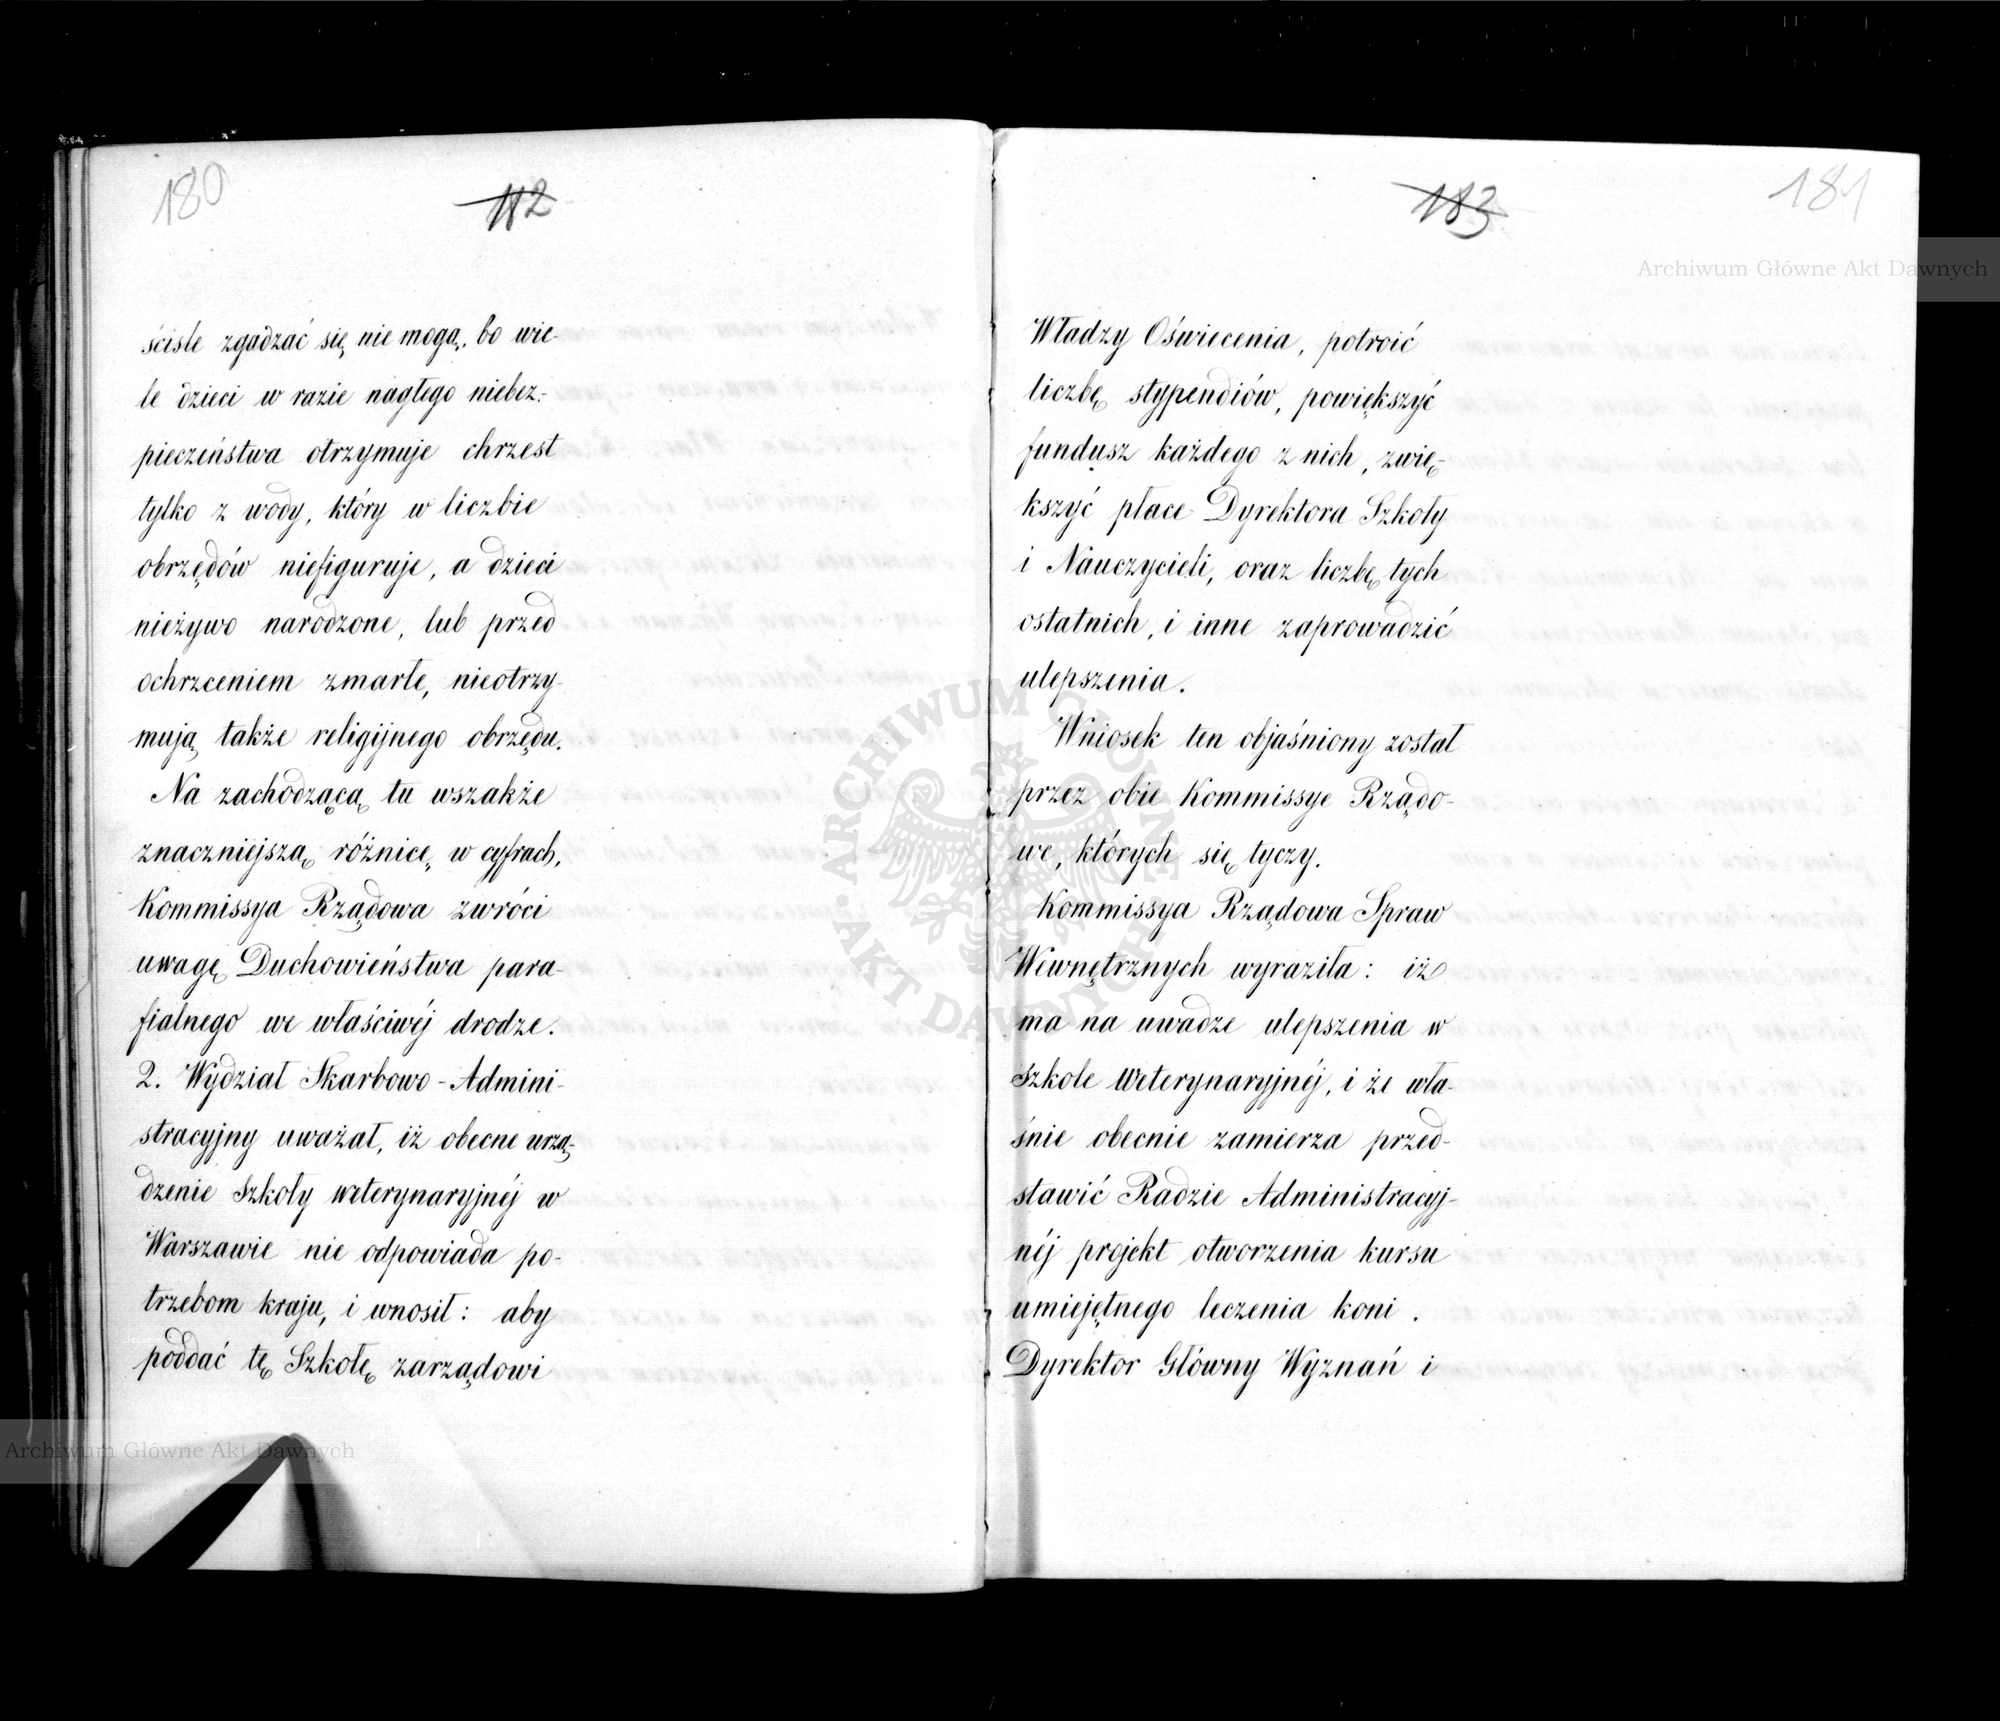 180
182
ściśle zgadzać się nie mogą, bo wie-
le dzieci w razie nagłego niebez-
pieczeństwa otrzymuje chrzest
tylko z wody, który w liczbie
obrzędów niefiguruje, a dzieci
nieżywo narodzone, lub przed
ochrzceniem zmarłe, nieotrzy-
mują także religijnego obrzędu.
Na zachodzącą tu wszakże
znaczniejszą różnicę w cyfrach,
Kommissya Rządowa zwróci
uwagę Duchowieństwa para-
fialnego we właściwéj drodze.
2. Wydział Skarbowo-Admini-
stracyjny uważał, iż obecne urzą-
dzenie Szkoły weterynaryjnéj w
Warszawie nie odpowiada po-
trzebom kraju, i wnosił: aby
poddać tę Szkołę zarządowi
183
181
Władzy Oświecenia, potroić
liczbę stypendiów, powiększyć
fundusz każdego z nich, zwię-
kszyć płace Dyrektora Szkoły
i Nauczycieli, oraz liczbę tych
ostatnich, i inne zaprowadzić
ulepszenia.
Wniosek ten objaśniony został
przez obie Kommissye Rządo-
we, których się tyczy.
Kommissya Rządowa Spraw
Wewnętrznych wyraziła: iż
ma na uwadze ulepszenia w
Szkole Weterynaryjnéj, i że wła-
śnie obecnie zamierza przed-
stawić Radzie Administracyj-
néj projekt otworzenia kursu
umiejętnego leczenia koni.
Dyrektor Główny Wyznań i
Archiwum Główne Akt Dawnych
Archiwum Główne Akt Dawnych
ARCHIWUM GŁÓWNE AKT DAWNYCH